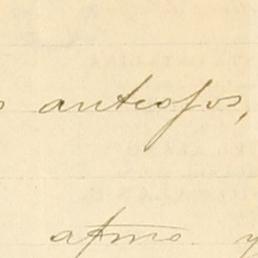 s anteojos,
afmo. y